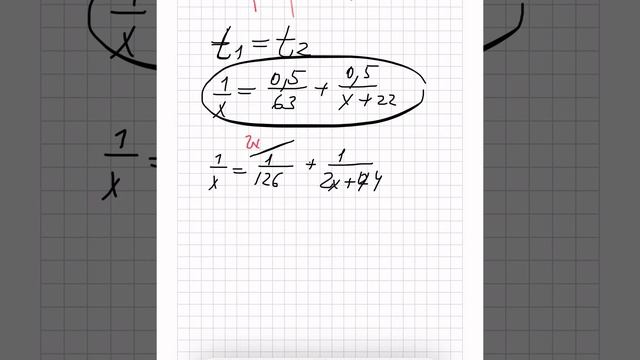 t₁ = t₂
1/x = 0,5/63 + 0,5/(x + 22)
2x
1/x = 1/126 + 1/(2x + 44)
1/x
1/x =